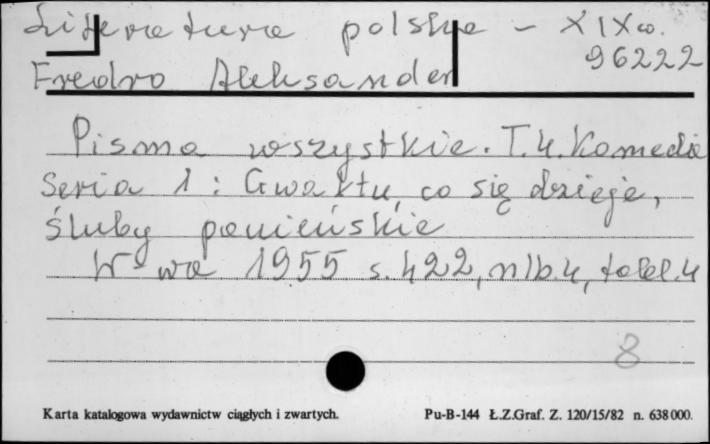 Literatura polska – XIX w.
96222
Fredro Aleksander
Pisma wszystkie. T.4. Komedia
Seria 1 : Gwałtu, co się dzieje,
Śluby panieńskie
W-wa 1955 s. 422, nlb. 4, tabl. 4
8
Karta katalogowa wydawnictw ciągłych i zwartych.
Pu-B-144 Ł.Z.Graf. Z. 120/15/82 n. 638 000.